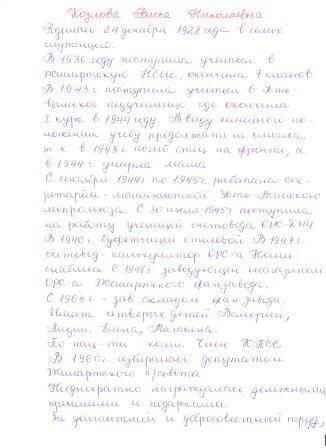 Козлова Раиса Николаевна
Родилась 24 декабря 1928 года в семье
служащего.
В 1936 году поступила учиться в
Жешартскую НСШ, окончила 7 классов.
В 1943 г поступила учиться в Усть-
Вымское педучилище, где окончила
I курс в 1944 году. Ввиду семейного по-
ложения учёбу продолжить не смогла,
т.к. в 1943 г погиб отец на фронте, а
в 1944 г. умерла мама
С сентября 1944 г по 1945 г. работала сек-
ретарём-машинисткой Усть-
леспромхоза. С 30 июля 1945 г поступила
на работу ученицей счетовода ОРС-
В 1946 г. буфетчицей столовой. В 1947 г.
счетовод-калькулятор ОРС-а
С 1948 г. заведующей магазином
ОРС-а Жешартского фанзавода.
С 1963 г. - зав. складом фанзавода.
Имеет четверых детей: Валерий,
Лидия, Елена, Татьяна.
По нац-ти коми. Член КПСС
В 1960 г. избиралась депутатом
Жешартского п/совета.
Неоднократно награждалась денежными
премиями и подарками.
За долголетний и добросовестный труд,